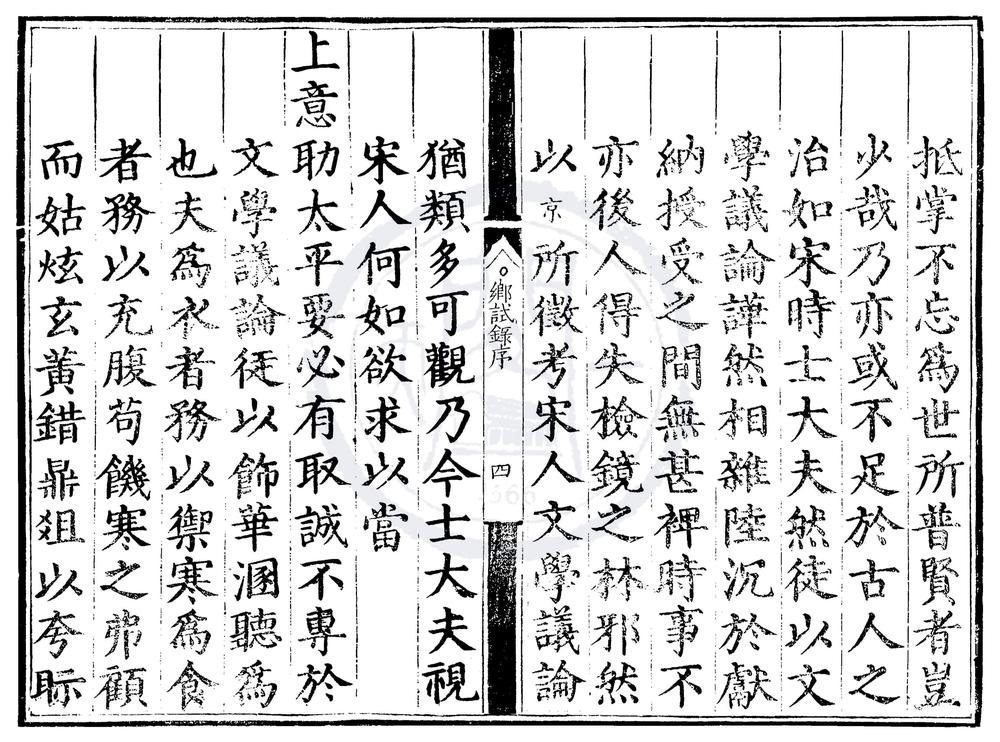 抵掌不忘爲世所普賢者豈
少哉乃亦或不足於古人之
治如宋時士大夫然徒以文
學議論譁然相雜陸沉於獻
納授受之間無甚裨時事不
亦後人得失檢鏡之林邪然
以京所徵考宋人文學議論
鄉試錄序
四
猶類多可觀乃今士大夫視
宋人何如欲求以當
上意助太平要必有取誠不專於
文學議論徒以飾華溷聽爲
也夫爲衣者務以禦寒爲食
者務以充腹苟饑寒之弗顧
而姑炫玄黃錯鼎俎以夸眎